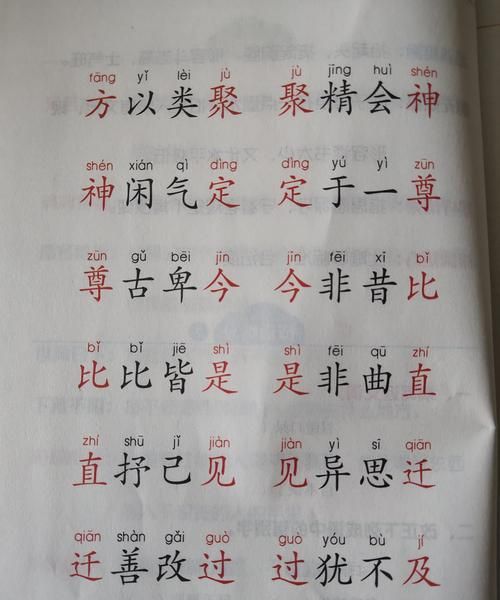 fāng yǐ lèi jù jù jīng huì shén
方以类聚 聚精会神
shén xián qì dìng dìng yú yì zūn
神闲气定 定于一尊
zūn gǔ bēi jīn jīn fēi xī bǐ
尊古卑今 今非昔比
bǐ bǐ jiē shì shì fēi qū zhí
比比皆是 是非曲直
zhí shū jǐ jiàn jiàn yì sī qiān
直抒己见 见异思迁
qiān shàn gǎi guò guò yóu bù jí
迁善改过 过犹不及